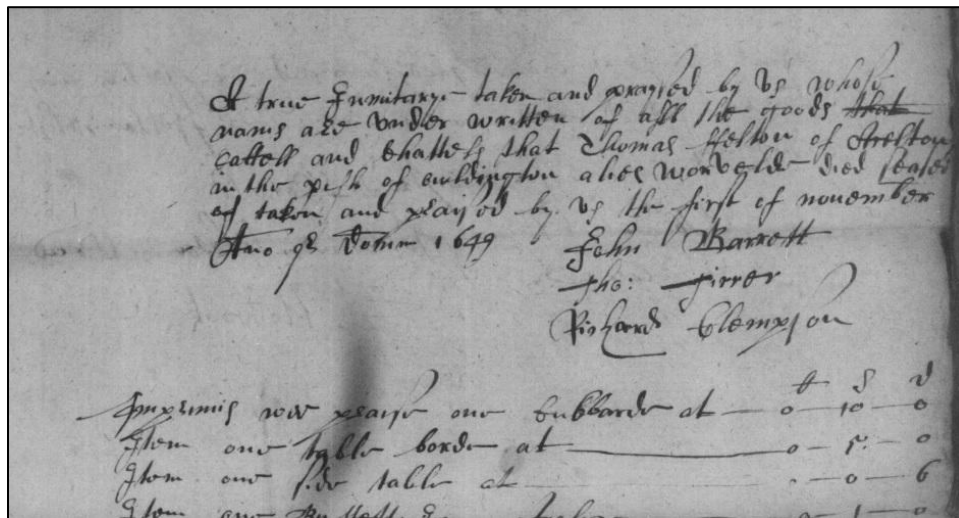 A true Inmitarye taken and praysed by vs whose
nams are vnder written of all the goods that
Cattell and Chattells that Thomas ffelton of
in the pish of alies worvelde died seased
of taken and praysed by vs the first of november
Ano Domin 1649
John Barrett
Tho: Firrer
Richard Clempson
s d
Imprimis wee praise one Cubbarde at — 0 — 10 — 0
Item one table borde at — 0 — 5 — 0
Item one side table at — 0 — 6
Item one